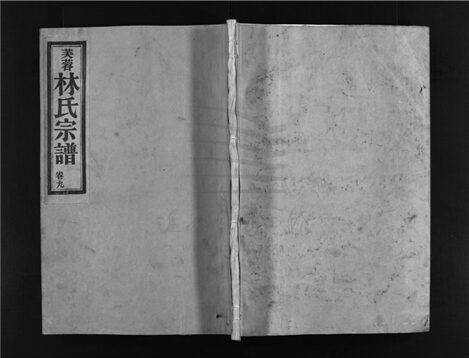 芙蓉
林氏宗譜
卷九